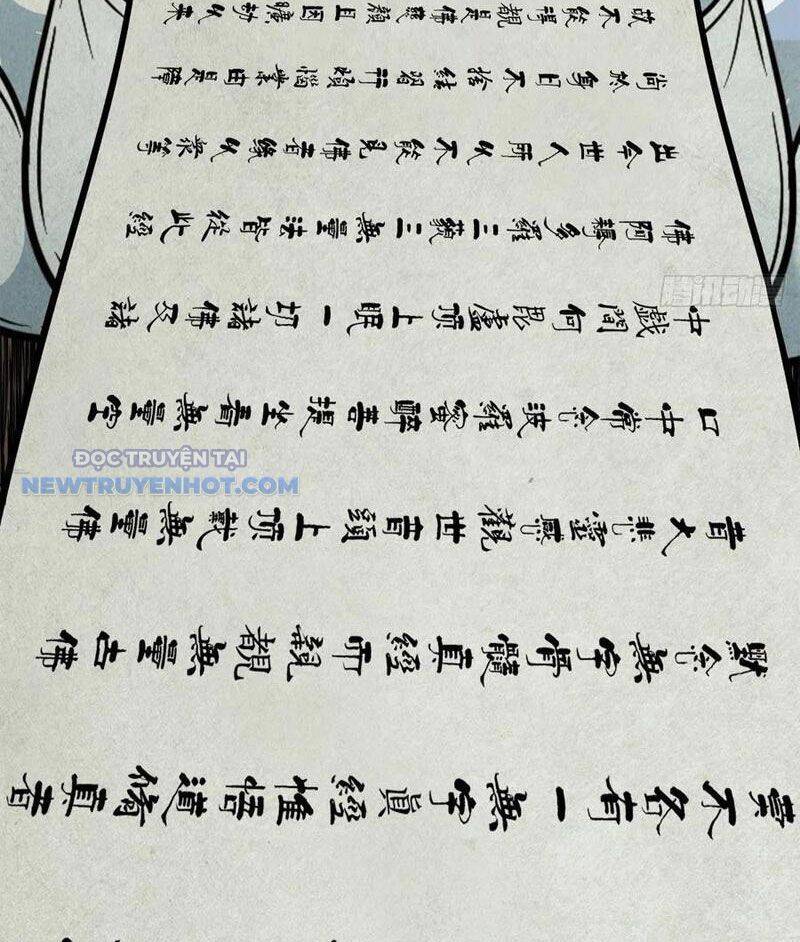 不名有一無字真經惟悟道脩真者
默念無字骨髓真經而親覩無量古佛
音大悲靈感觀世音頭上頂戴無量佛
口中常念波羅蜜醉菩提坐看無量空
中戲問何毘盧頂上眠一切諸佛及諸
佛阿耨多羅三藐三無量法皆從此經
出今世人所以不能見佛者緣以眾等
尚然每日不捨結習行煩惱業由是障
故不能得覩是佛慈顏且因曠劫以來
腾讯动漫
ĐỌC TRUYỆN TẠI
NEWTRUYENHOT.COM